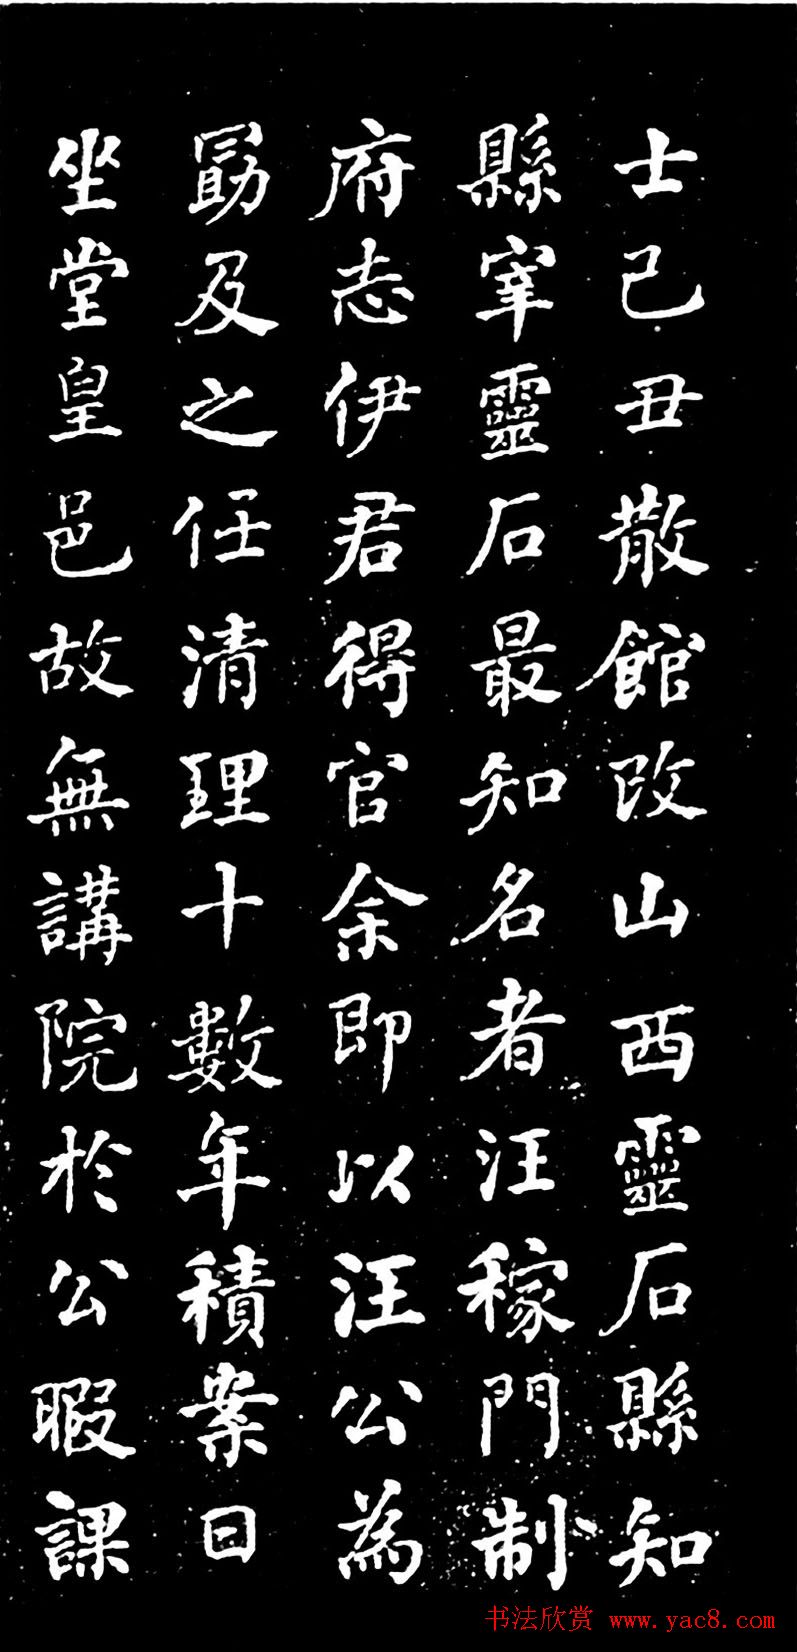 士己丑散館改山西靈石縣知
縣宰靈石最知名者汪稼門制
府志伊君得官余即以汪公為
勗及之任清理十數年積案日
坐堂皇邑故無講院於公暇課
书法欣赏 www.yac8.com